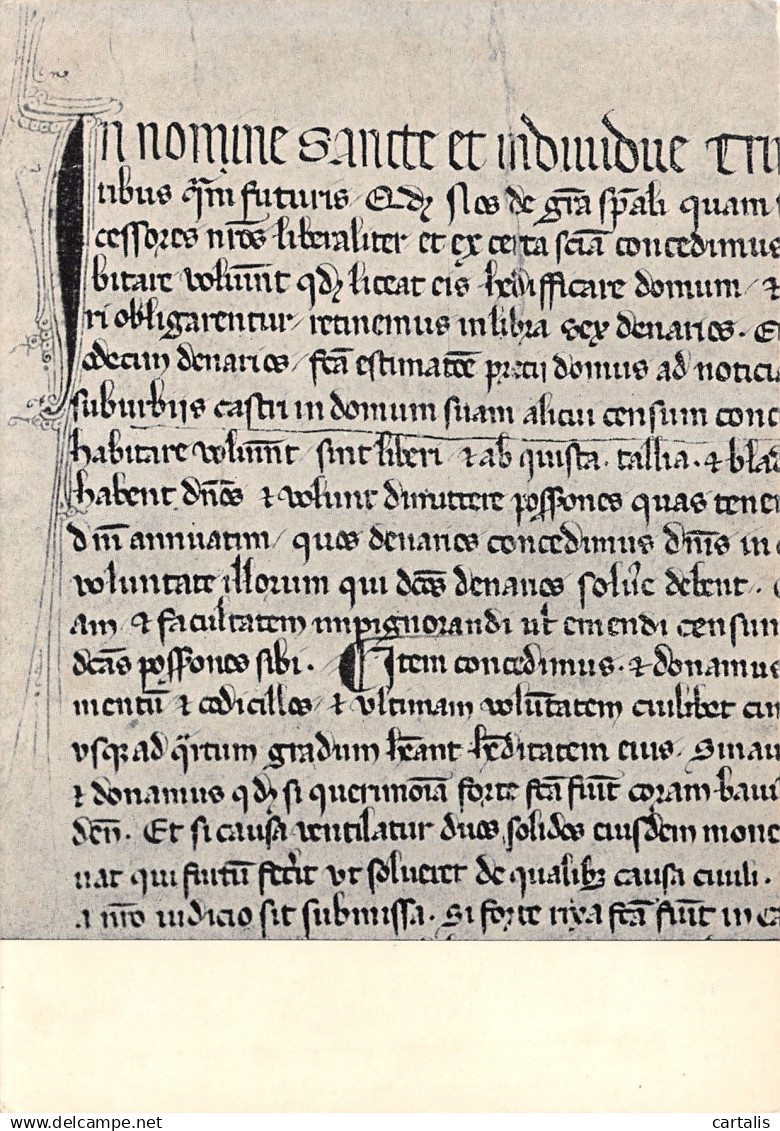 In nomine sancte et individue Tri
tibus q̄m futuris. Qđ nos de gr̄a sp̄ali quam
cessores nr̄os liberaliter et ex certa scīa concedimus
bitare volūnt qđ liceat eis hedifficare domum / ⁊
ri obligarentur / retinemus in libra sex denarios. Et
decim denarios / fc̄a estimatōe precij domus ad notici
suburbijs castri in domum suam alicui censum conc
habitare volūnt sint liberi ⁊ ab quista. tallia. ⁊ blad
habent dn̄os ⁊ volunt dimittere poss̄iones quas tene
dn̄i annuatim / quos denarios concedimus dn̄is in
voluntate illorum qui dc̄os denarios solv̄e debent.
am ⁊ facultatem impignorandi ul̄ emendi censum
dc̄as poss̄iones sibi. Item concedimus. ⁊ donamus
mentū ⁊ codicillos ⁊ ultimam volūtatem cuilibet
usq; ad q̄rtum gradum hēant hēditatem eius. Sinau
⁊ donamus qđ si querimōia forte fc̄a fūit coram baiu
den̄. Et si causa ventilatur duos solidos eiusdem mone
uat qui fuitū fec̄it ut solueret de qualib; causa ciuili.
a nr̄o iudicio sit submissa. Si forte rixa fc̄a fūit in ca
cartalis